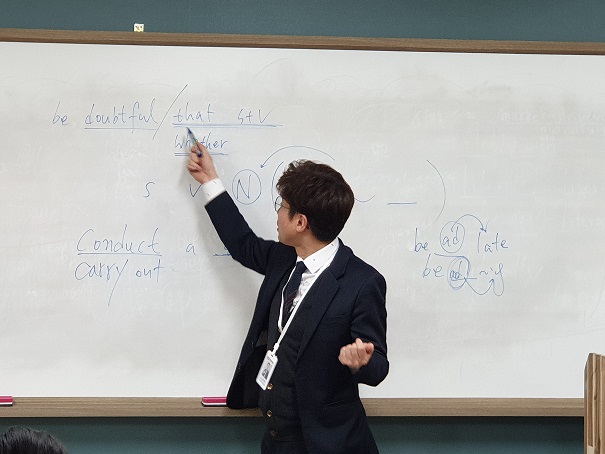 be doubtful / that S+V
whether
S V N
Conduct a
carry out
be ad late
be ad ing